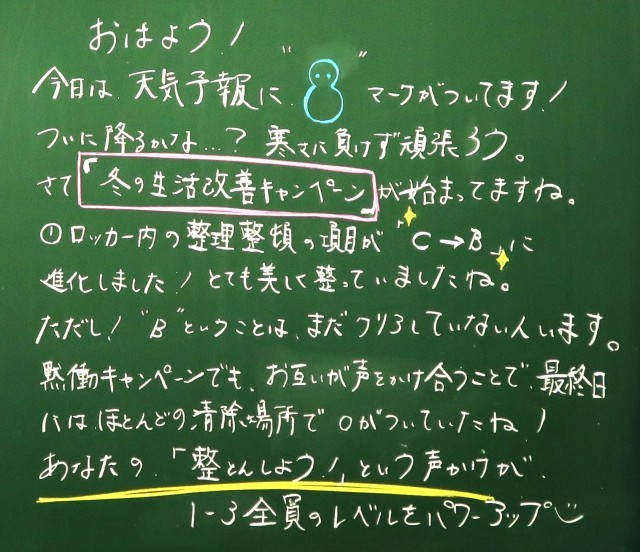 おはよう！
今日は、天気予報に" "マークがついてます！
ついに降るかな…？寒さに負けず頑張ろう。
さて「冬の生活改善キャンペーン」が始まってますね。
①ロッカー内の整理整頓の項目が「C→B」に
進化しました！とても美しく整っていましたね。
ただし！"B"ということは、まだクリアしていない人います。
黙働キャンペーンでも、お互いが声をかけ合うことで、最終日
には、ほとんどの清掃場所で○がついていたね！
あなたの、「整とんしよう！」という声かけが、
1-3全員のレベルをパワーアップ